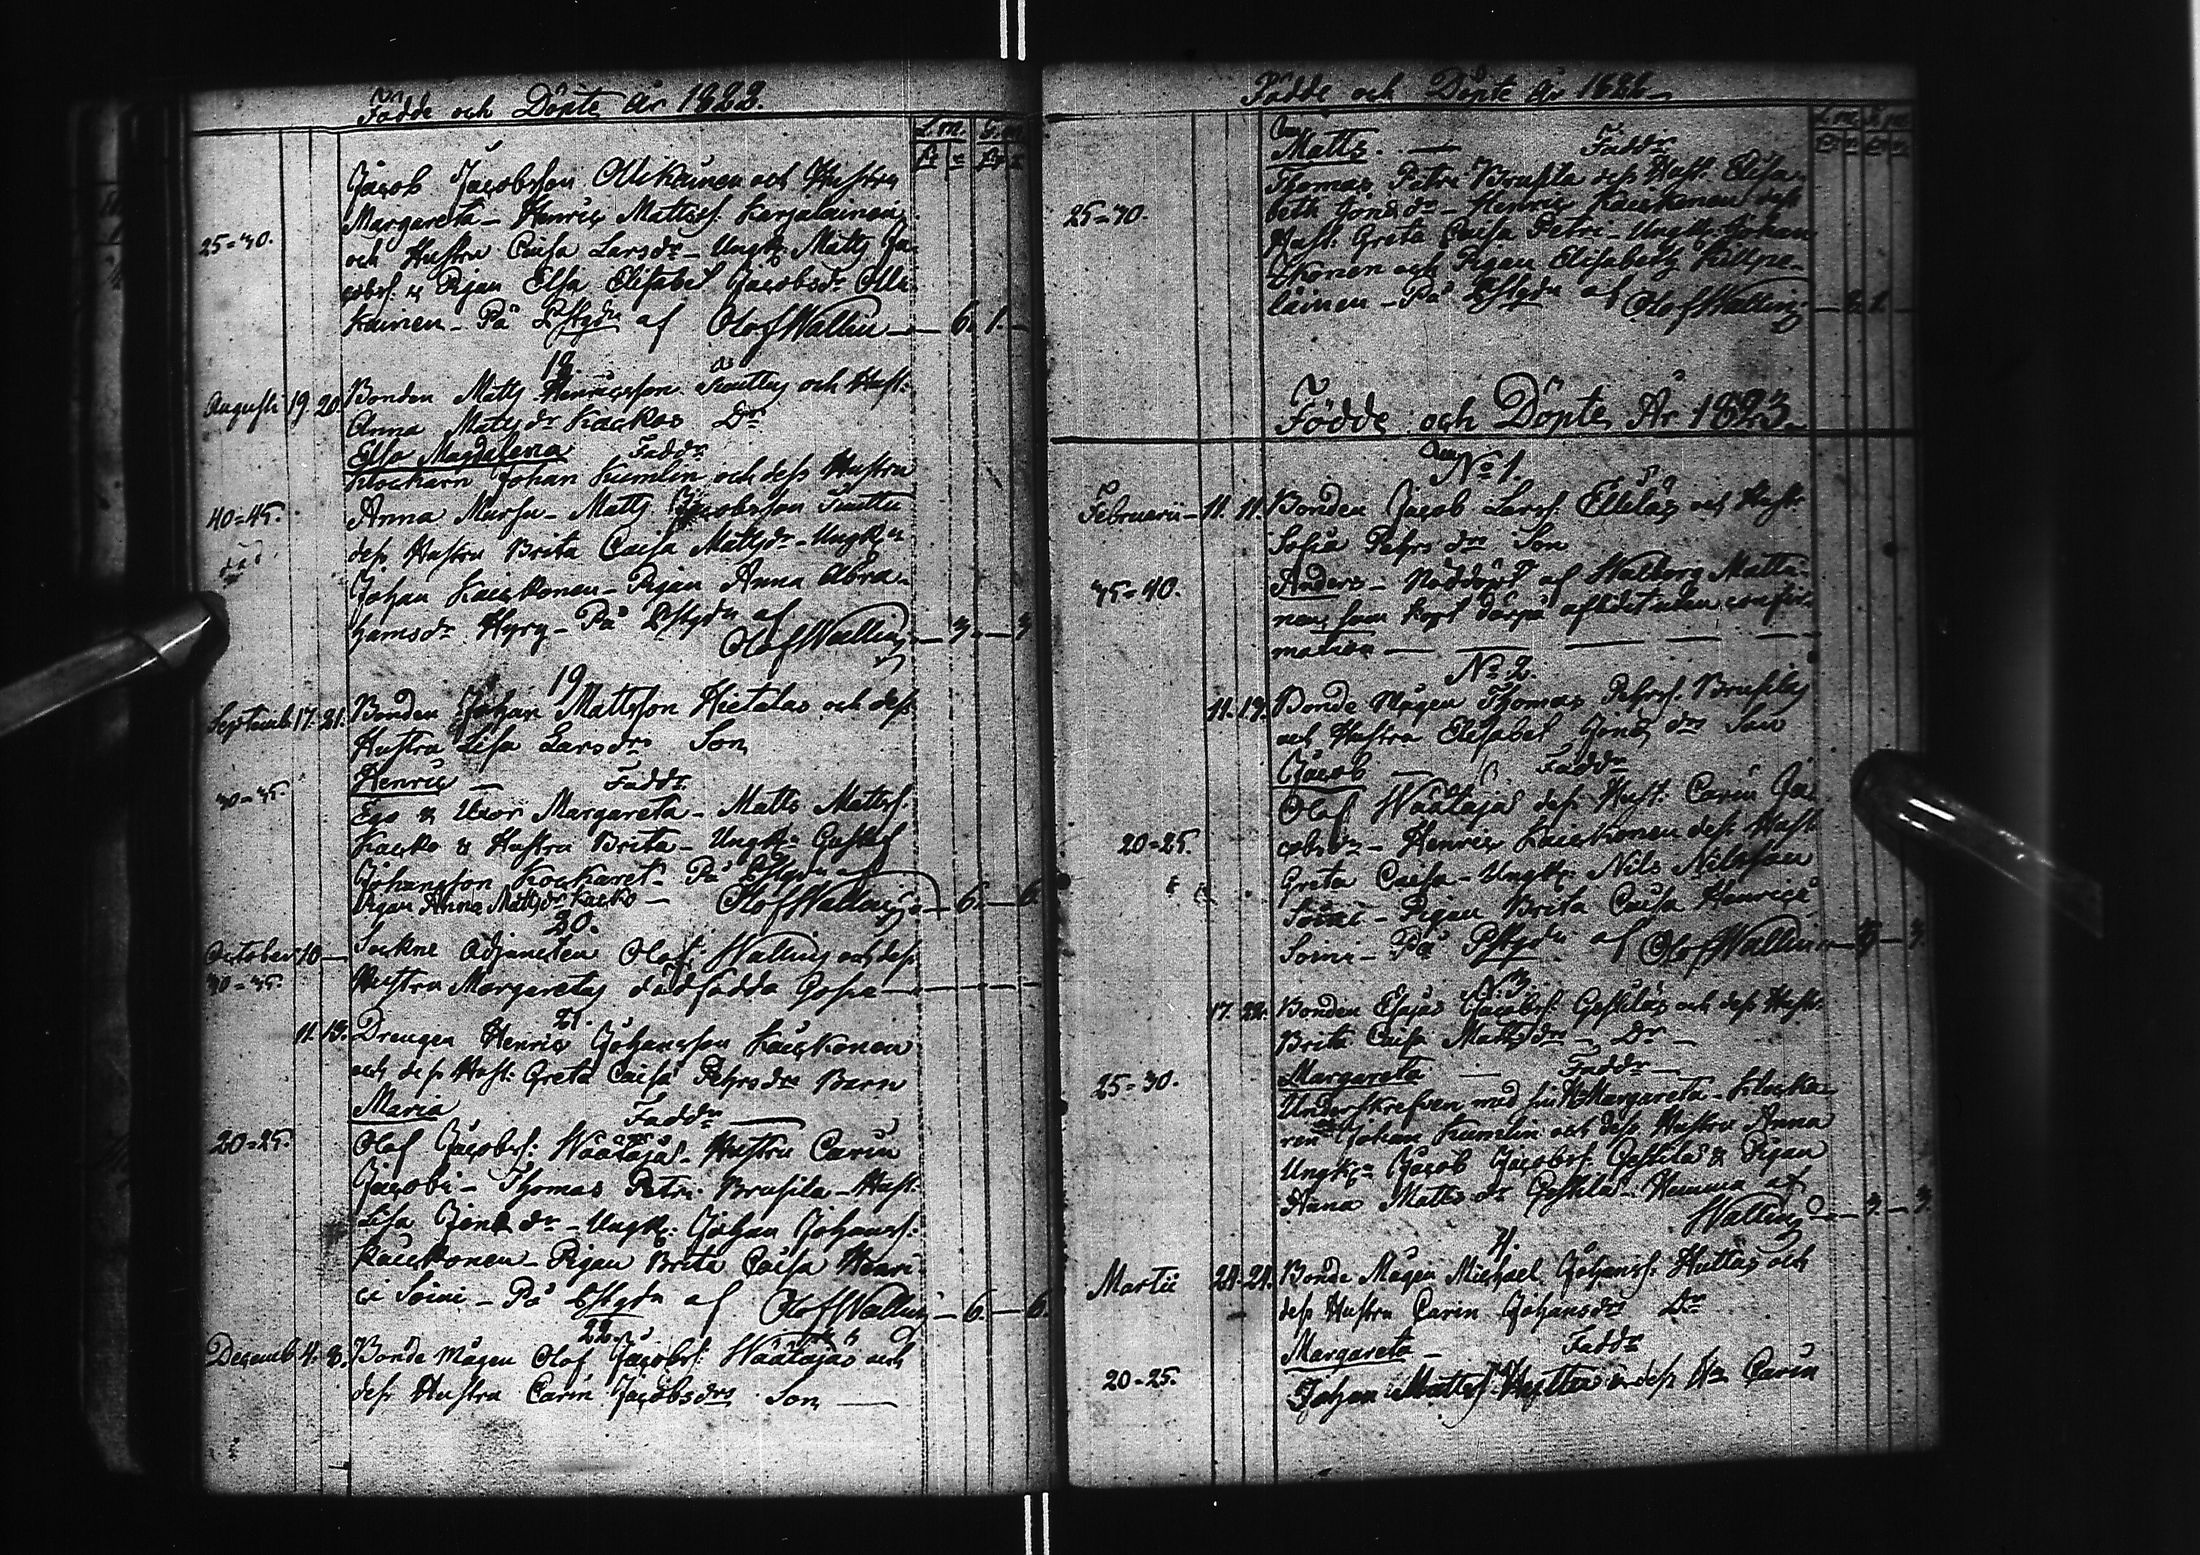 Födde och Döpte År 1822.
L. m. S. m.
Jacob Jacobsson Ollikainen och Hustru
Margareta – Henric Mattss. Karjalainen
25=30.
och Hustru Caisa Larsdr – Ungk. Matts Ja-
cobss. & Pigan Elsa Elisabet Jacobsdr Olli-
kainen – På Pstgdn af Olof Wallin — 6. 1. —
18.
Augusti 19. 20. Bonden Matts Henricsson och Hust:
Anna Mattsdr Kackos Dr
Elsa Magdalena Faddr
Klockarn Johan Kumlin och dess Hustru
40=45.
Anna Maria – Matts Jacobsson
dess Hustru Brita Caisa Mattsdr – Ungkn
Johan Kaickonen – Pigan Anna Abra-
hamsdr Hyry – På Pstgdn af
Olof Wallin — 3. — 3
19
Septemb. 17. 21. Bonden Johan Mattsson Hietalas och dess
Hustru Lisa Larsdr Son
Henric — Faddr
30=35.
Ego & Uxor Margareta – Matts Mattss.
Kacko & Hustru Brita – Ungk. Gustaf
Johansson – På Pstgdn af
Pigan Anna Mattsdr Kacko — Olof Wallin — 6. — 6.
20.
October 10 — Sockne Adjuncten Olof Wallins och dess
30=35. Hustru Margaretas dödfödda Gosse —
21.
11. 13. Drengen Henric Johansson Kaickonen
och dess Hust: Greta Caisa Pehrsdrs Barn
Maria Faddr —
20=25.
Olof Jacobss: Wäätäjäs – Hustru Carin
Jacobi – Thomas Petri Brusila – Hust.
Lisa Jönsdr – Ungk: Johan Johanss:
Kaickonen – Pigan Brita Caisa Henri-
ci Soini – På Pstgdn af Olof Wallin — 6. — 6.
22.
Decemb. 4. 8. Bonde Mågen Olof Jacobss: Wäätäjäs och
dess Hustru Carin Jacobsdrs Son —
Födde och Döpte År 1822
Matts. — Faddr
Thomas Petri Brusila dess Hust. Elisa-
beth Jönsdr – Henric Kaickonen dess
25=30.
Hust: Greta Caisa Petri – Ungk. Johan
Ikonen och Pigan Elisabeth
läinen – På Pstgdn af Olof Wallin
Födde och Döpte År 1823
No 1.
Februarii – 11. 11. Bonden Jacob Larss. Ellilas och Hust.
Sofia Pehrs drs Son
Anders – Nöddöpt af Walborg Matti-
35=40.
nen, som kort därpå aflidit utan confir-
mation —
No 2.
11. 19. Bonde Mågen Thomas Pehrss. Brusilas
och Hustru Elisabet Jöns drs Son
Jacob — Faddr
Olof Wäätäjäs dess Hust: Carin Ja-
20=25.
cobsdr – Henric Kaickonen dess Hust
Greta Caisa – Ungk: Nils Nilsson
Soini – Pigan Brita Caisa Henrici
Soini – På Pstgdn af Olof Wallin — 3. — 3.
No 3.
17. 22. Bonden Esaias Jacobss. Gestilas och dess Hust:
Brita Caisa Mattsdrs – Dr –
25=30.
Margareta — Faddr —
Underskrefven med sin H. Margareta – Klocka-
ren Johan Kumlin och dess Hustru Anna
Ungkn Jacob Jacobss. Gestilas & Pigan
Anna Matts dr Gestilas Hemma af
Wallin — 3. — 3.
4.
Martii 24. 24. Bonde Mågen Michael Johanss. Huttas och
dess Hustru Carin Johansdrs Dr
Margareta – Faddr
20=25.
Johan Mattss. Hutta & dess H. Carin